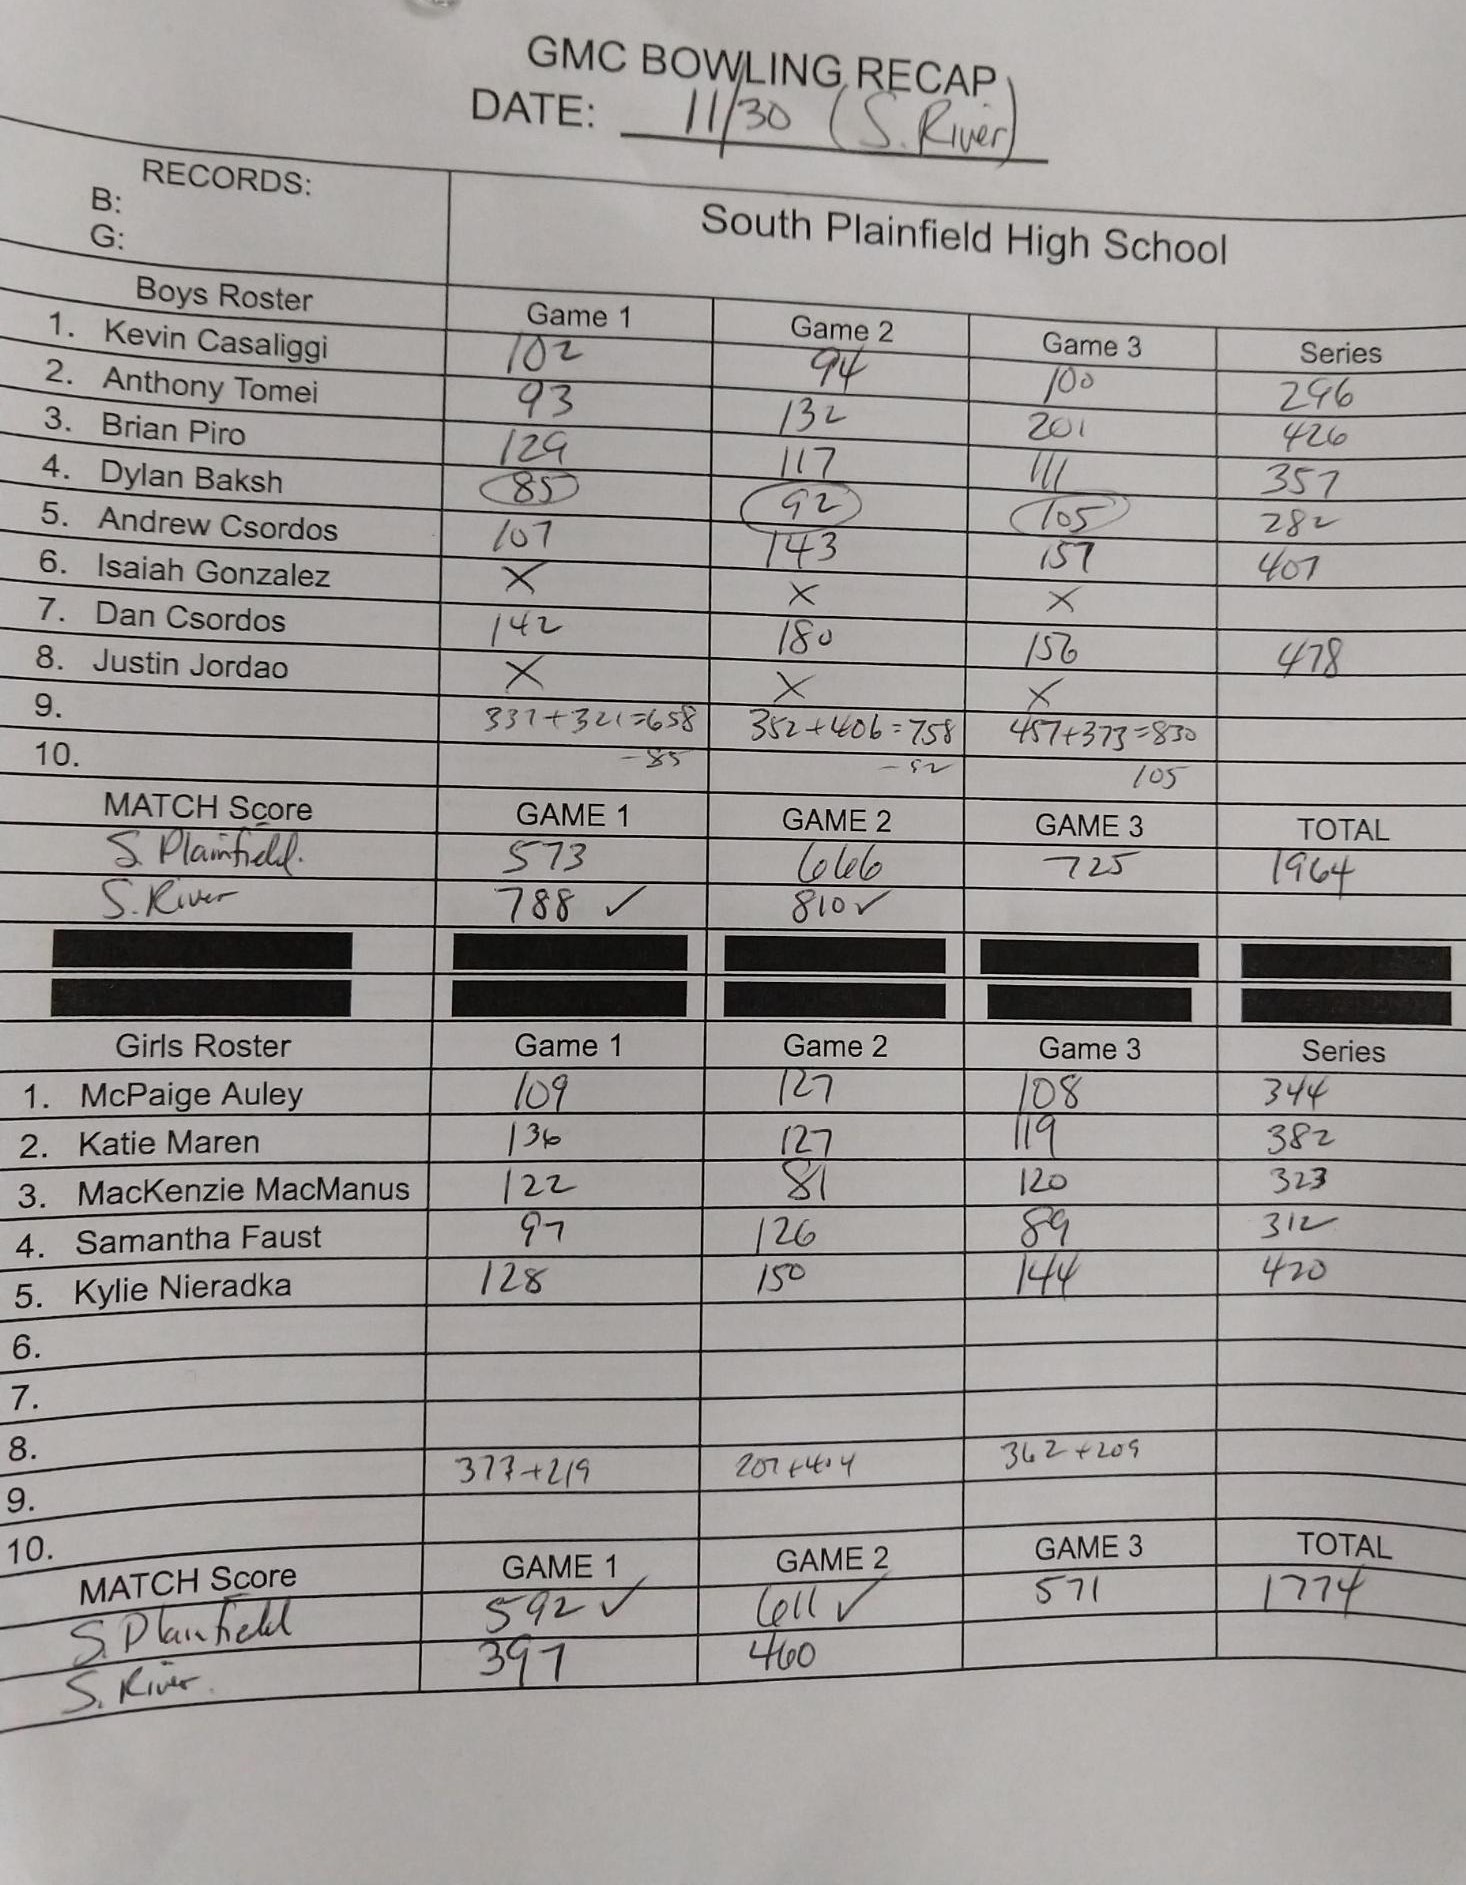 GMC BOWLING RECAP
DATE: 11/30 (S. River)
RECORDS:
B:
G:
South Plainfield High School
Boys Roster Game 1 Game 2 Game 3 Series
1. Kevin Casaliggi 102 94 100 296
2. Anthony Tomei 93 132 201 426
3. Brian Piro 129 117 111 357
4. Dylan Baksh 85 92 105 282
5. Andrew Csordos 107 143 157 407
6. Isaiah Gonzalez X X X
7. Dan Csordos 142 180 156 478
8. Justin Jordao X X X
9. 337+321=658 352+406=758 457+373=830
10. -85 -92 105
MATCH Score GAME 1 GAME 2 GAME 3 TOTAL
S. Plainfield. 573 666 725 1964
S. River 788 ✓ 810 ✓
Girls Roster Game 1 Game 2 Game 3 Series
1. McPaige Auley 109 127 108 344
2. Katie Maren 136 127 119 382
3. MacKenzie MacManus 122 81 120 323
4. Samantha Faust 97 126 89 312
5. Kylie Nieradka 128 150 144 420
6.
7.
8. 373+219 207+404 362+209
9.
10.
MATCH Score GAME 1 GAME 2 GAME 3 TOTAL
S. Plainfield 592 ✓ 611 ✓ 571 1774
S. River. 397 460